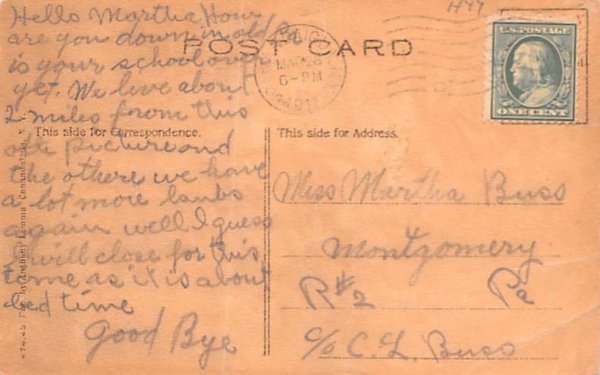 Hello Martha How
are you down in old Pa
is your school over
yet. We live about
2 miles from this
side picture and
the othere we have
a lot more lambs
again well I guess
I will close for this
time as it is about
bed time
Good Bye
POST CARD
6-PM
1911
U.S. POSTAGE
ONE CENT
This side for Correspondence.
This side for Address.
Miss Martha Buss
Montgomery
R#2 Pa
c/o C. L. Buss